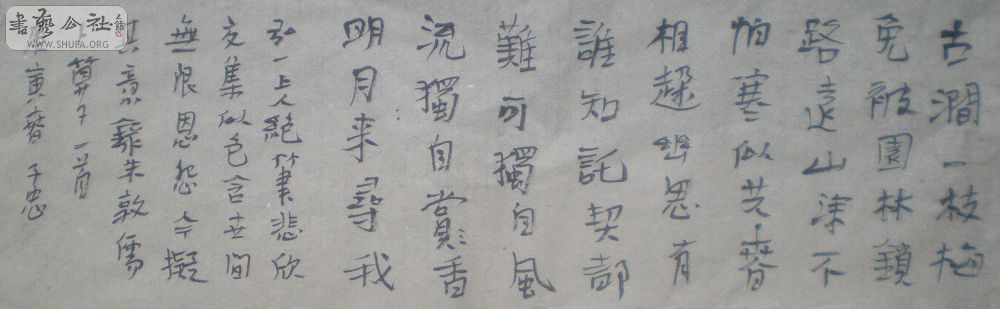 古澗一枝梅
免被園林鎖
路遠山深不
怕寒似共春
相趓幽思有
誰知託契都
難可獨自風
流獨自賞香
明月来尋我
弘一上人絕筆悲欣
交集似包含世間
無限恩怨今擬
其意錄朱敦儒
算子一首
寅春 子忠
書藝公社
WWW.SHUFA.ORG